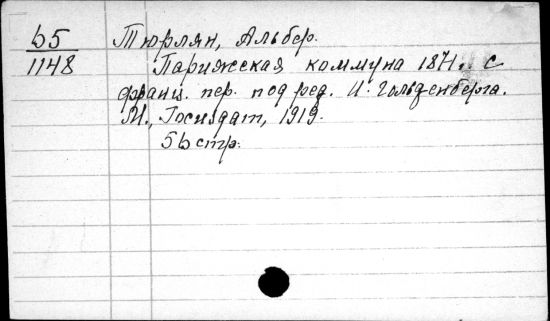 Б5 Тюрлян, Альбер.
1148 Парижская коммуна 1871г. с
франц. пер. под ред. И. Гольденберга.
М., Госиздат, 1919.
56 стр.